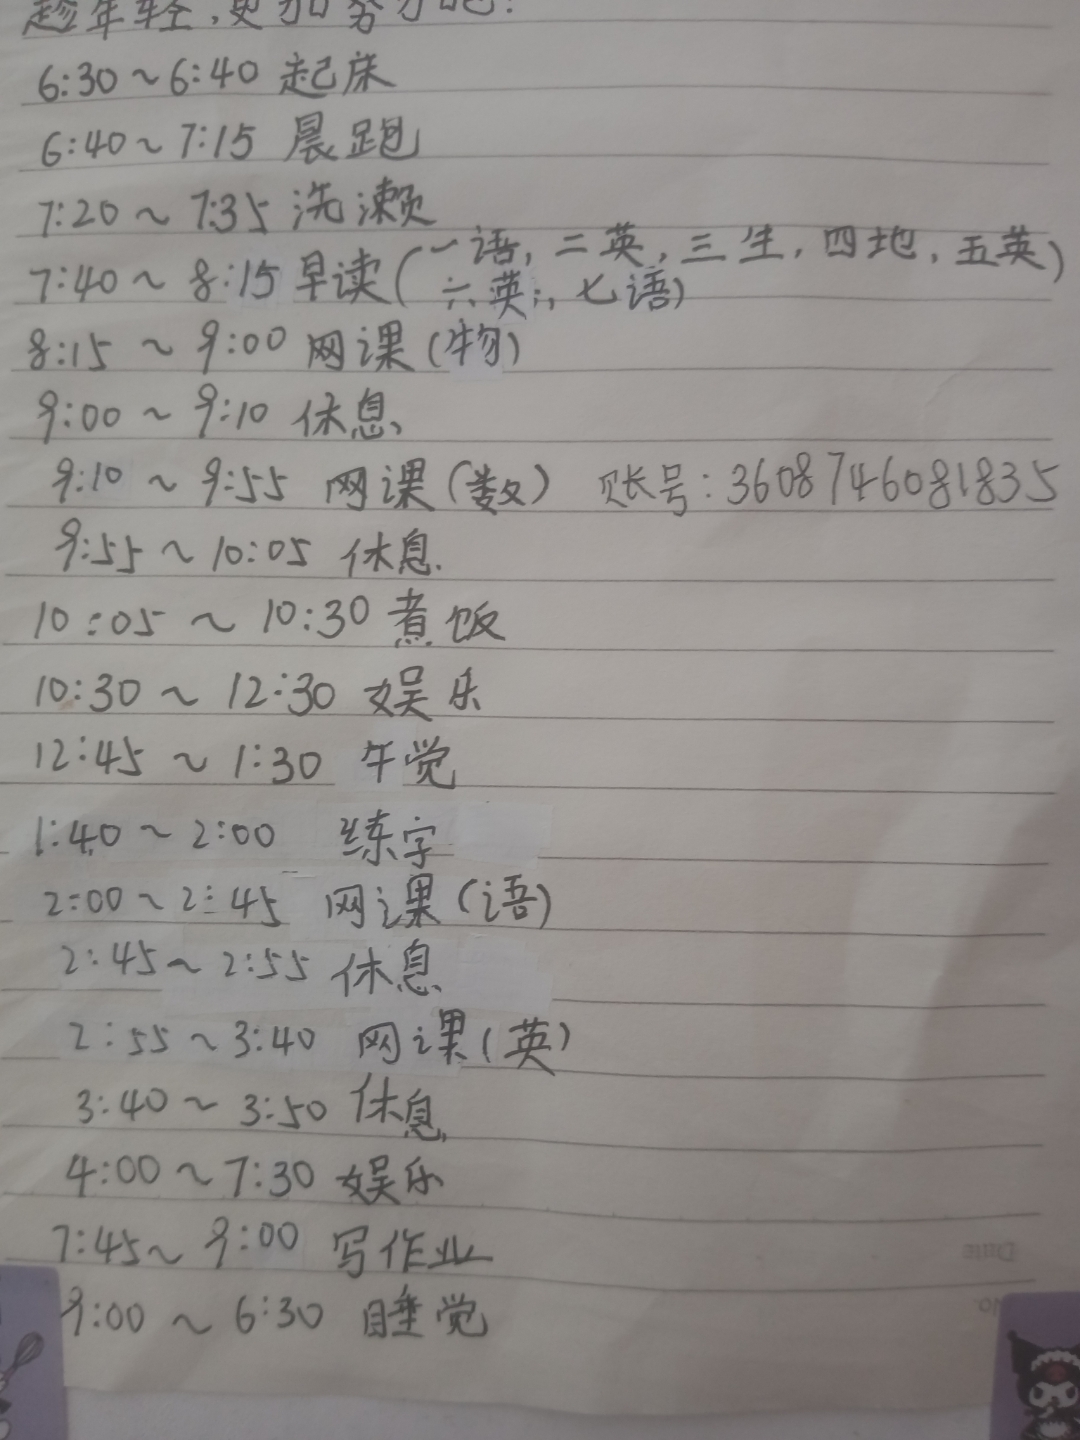 趁年轻,更加努力吧!
6:30~6:40 起床
6:40~7:15 晨跑
7:20~7:35 洗漱
7:40~8:15 早读(一语,二英,三生,四地,五英)
六英,七语)
8:15~9:00 网课(物)
9:00~9:10 休息
9:10~9:55 网课(数) 账号:3608746081835
9:55~10:05 休息.
10:05~10:30 煮饭
10:30~12:30 娱乐
12:45~1:30 午觉
1:40~2:00 练字
2:00~2:45 网课(语)
2:45~2:55 休息
2:55~3:40 网课(英)
3:40~3:50 休息
4:00~7:30 娱乐
7:45~9:00 写作业
9:00~6:30 睡觉
Date
No.